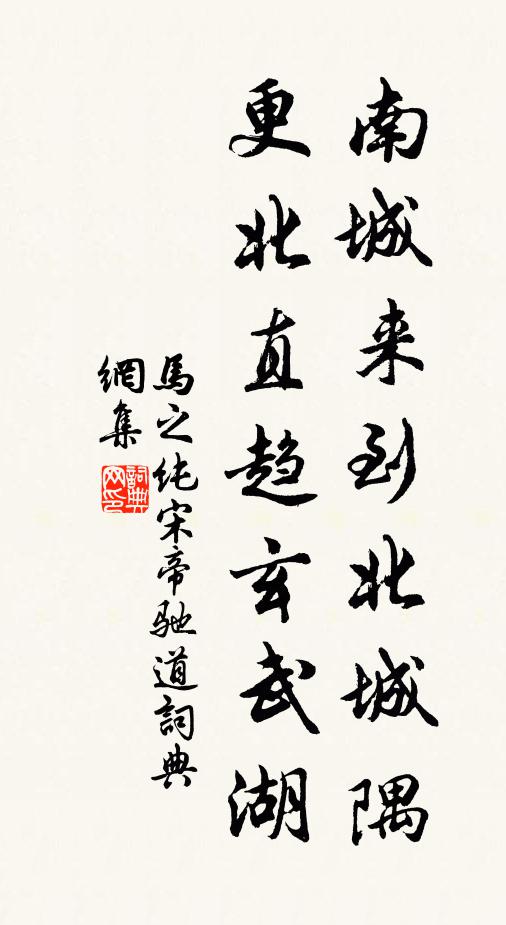 南城来到北城隅
更北直趋玄武湖
馬之純宋帝馳道詞典
網集
詞典網印